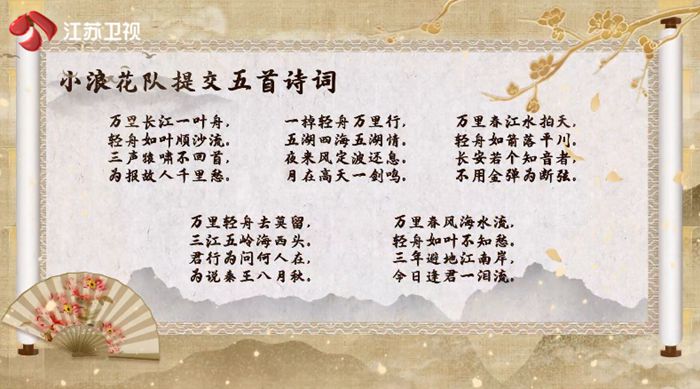 江苏卫视
小浪花队提交五首诗词
万里长江一叶舟，
轻舟如叶顺沙流。
三声猿啸不回首，
为报故人千里愁。
一棹轻舟万里行，
五湖四海五湖情。
夜来风定波还息，
月在高天一剑鸣。
万里春江水拍天，
轻舟如箭落平川。
长安若个知音者，
不用金弹为断弦。
万里轻舟去莫留，
三江五岭海西头。
君行为问何人在，
为说秦王八月秋。
万里春风海水流，
轻舟如叶不知愁。
三年避地江南岸，
今日逢君一泪流。